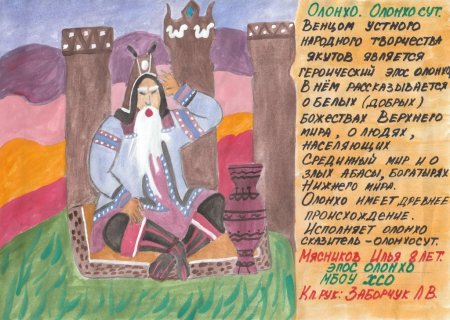 Олонхо. Олонхосут.
Венцом устного
народного творчества
якутов является
героический эпос олонхо.
В нём рассказывается
о белых (добрых)
божествах Верхнего
мира, о людях,
населяющих
Срединный мир и о
злых абасы, богатырях
Нижнего мира.
Олонхо имеет древнее
происхождение.
Исполняет олонхо
сказитель – олонхосут.
Мясников Илья 8 лет.
эпос олонхо
МБОУ ХСО
Кл.рук: Заборчук Л.В.